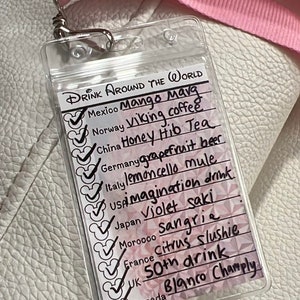 DRINK AROUND THE WORLD
Mexico Mango Marg
Norway Viking coffee
China Honey Hib Tea
Germany grapefruit beer
Italy lemoncello mule
USA imagination drink
Japan violet saki
Morocco sangria
France citrus slushie
UK 50th drink
Blanco Champly